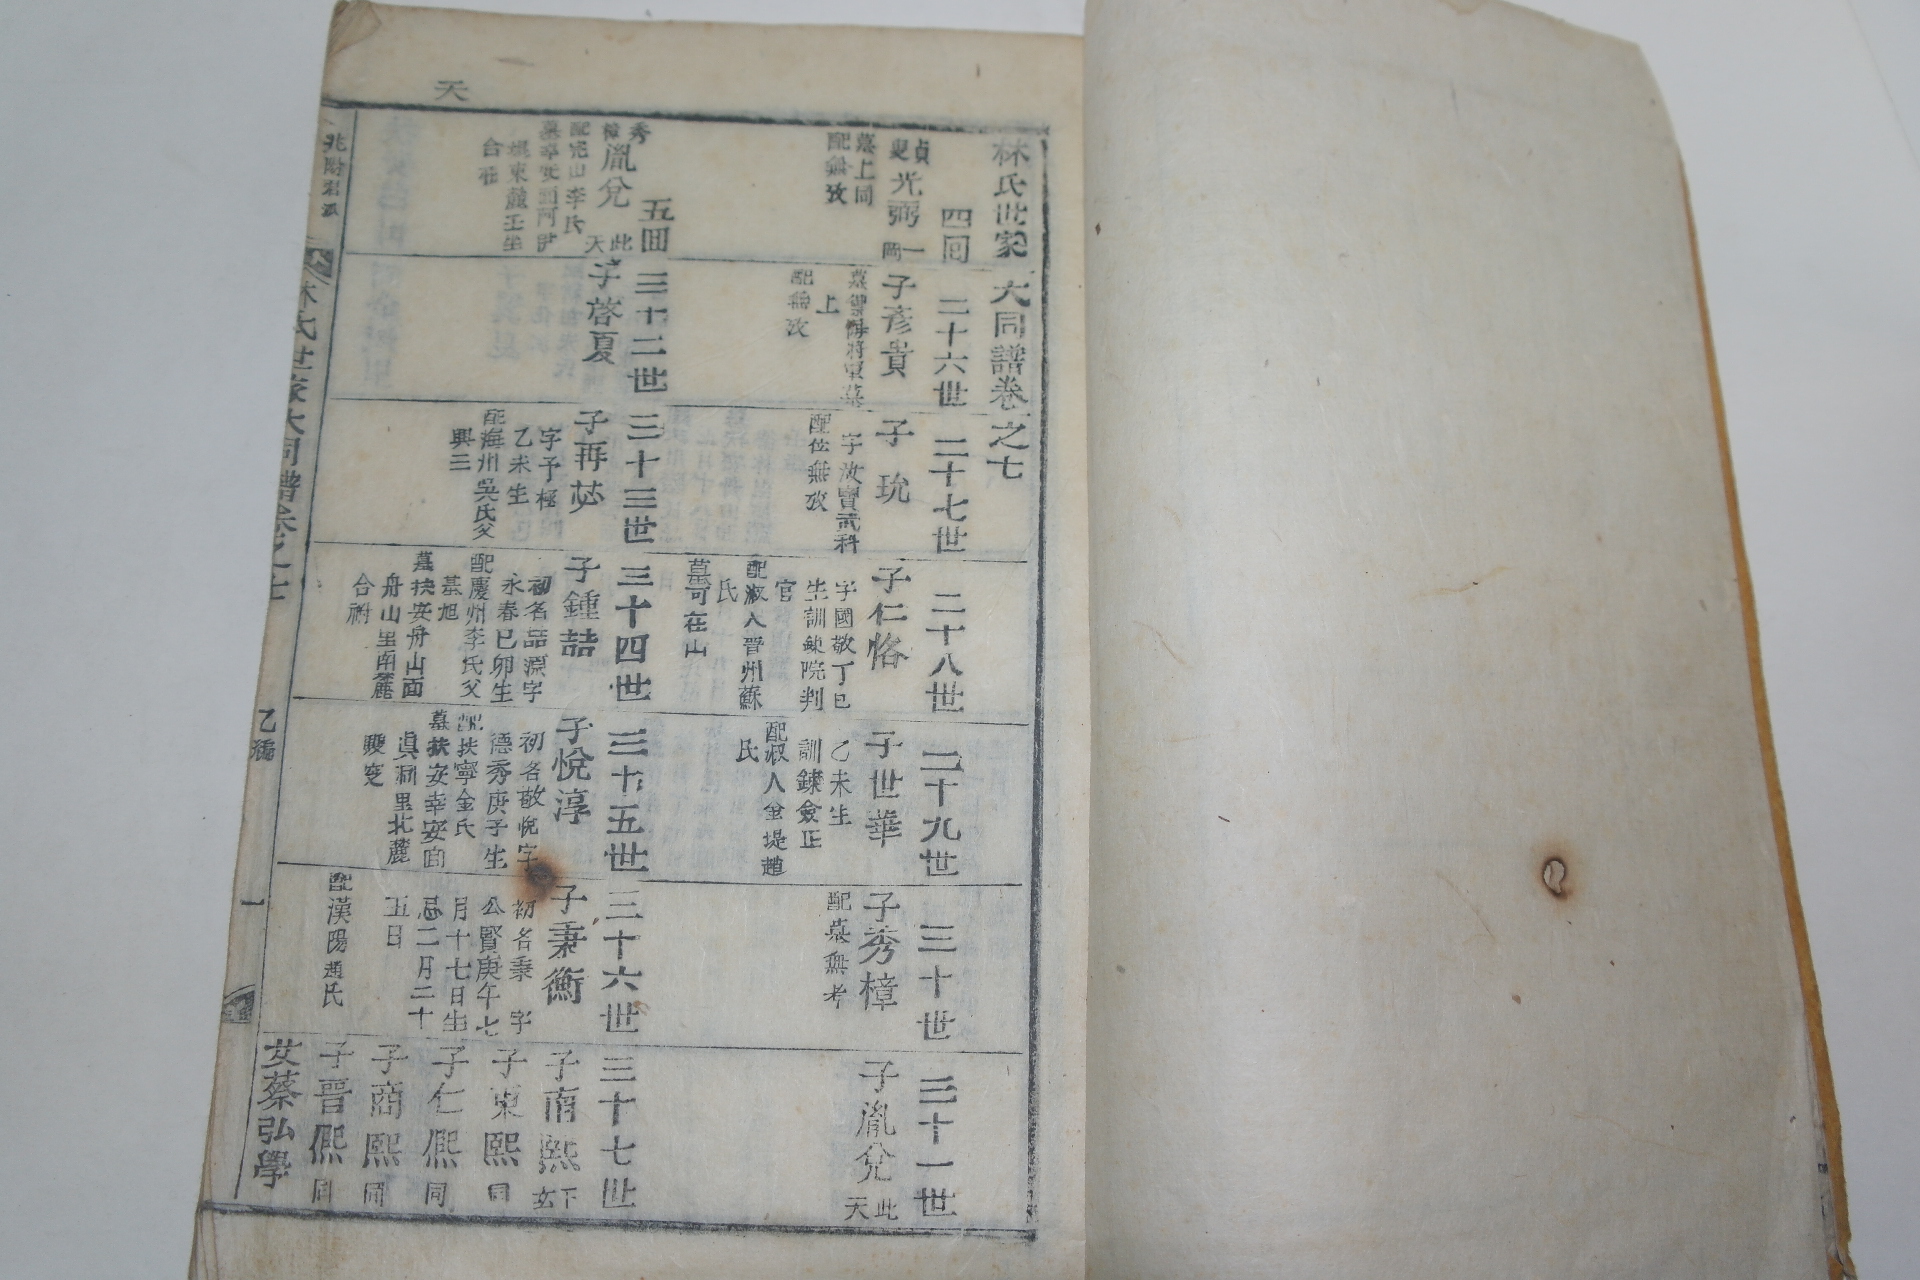 天
林氏世家大同譜卷之七
四囘
二十六世
二十七世
二十八世
二十九世
三十世
三十一世
貞叟
光弼
一同
墓上同
配無攷
子彦貴
上
配無攷
子玧
字汝寶武科
配位無攷
子仁恪
字國敬丁巳
生訓鍊院判
官
配淑人晉州蘇
氏
墓可在山
子世華
乙未生
訓鍊僉正
配淑人金堤趙
氏
子秀樟
配墓無考
子胤兌
此天
五囘
三十二世
三十三世
三十四世
三十五世
三十六世
三十七世
秀樟
胤兌
此天
配完山李氏
合祔
子啓夏
子再苾
字予極
乙未生
配海州吳氏父
興三
子鍾喆
初名喆源字
永春己卯生
配慶州李氏父
基旭
墓扶安舟山面
舟山里南麓
合祔
子悅淳
初名敬悅字
德秀庚子生
配扶寧金氏
墓扶安幸安面
眞洞里北麓
雙窆
子秉衡
初名秉 字
公賢庚午七
月十七日生
忌二月二十
五日
配漢陽趙氏
子南熙
下玄
子東熙
同
子仁熙
同
子商熙
同
子晋熙
同
女蔡弘學
林氏世家大同譜卷之七
乙編
一